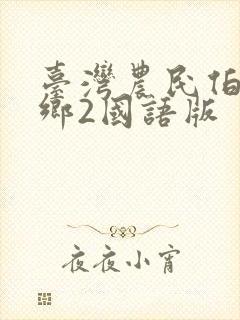 臺灣農民伯
鄉2國語版
夜夜小宵